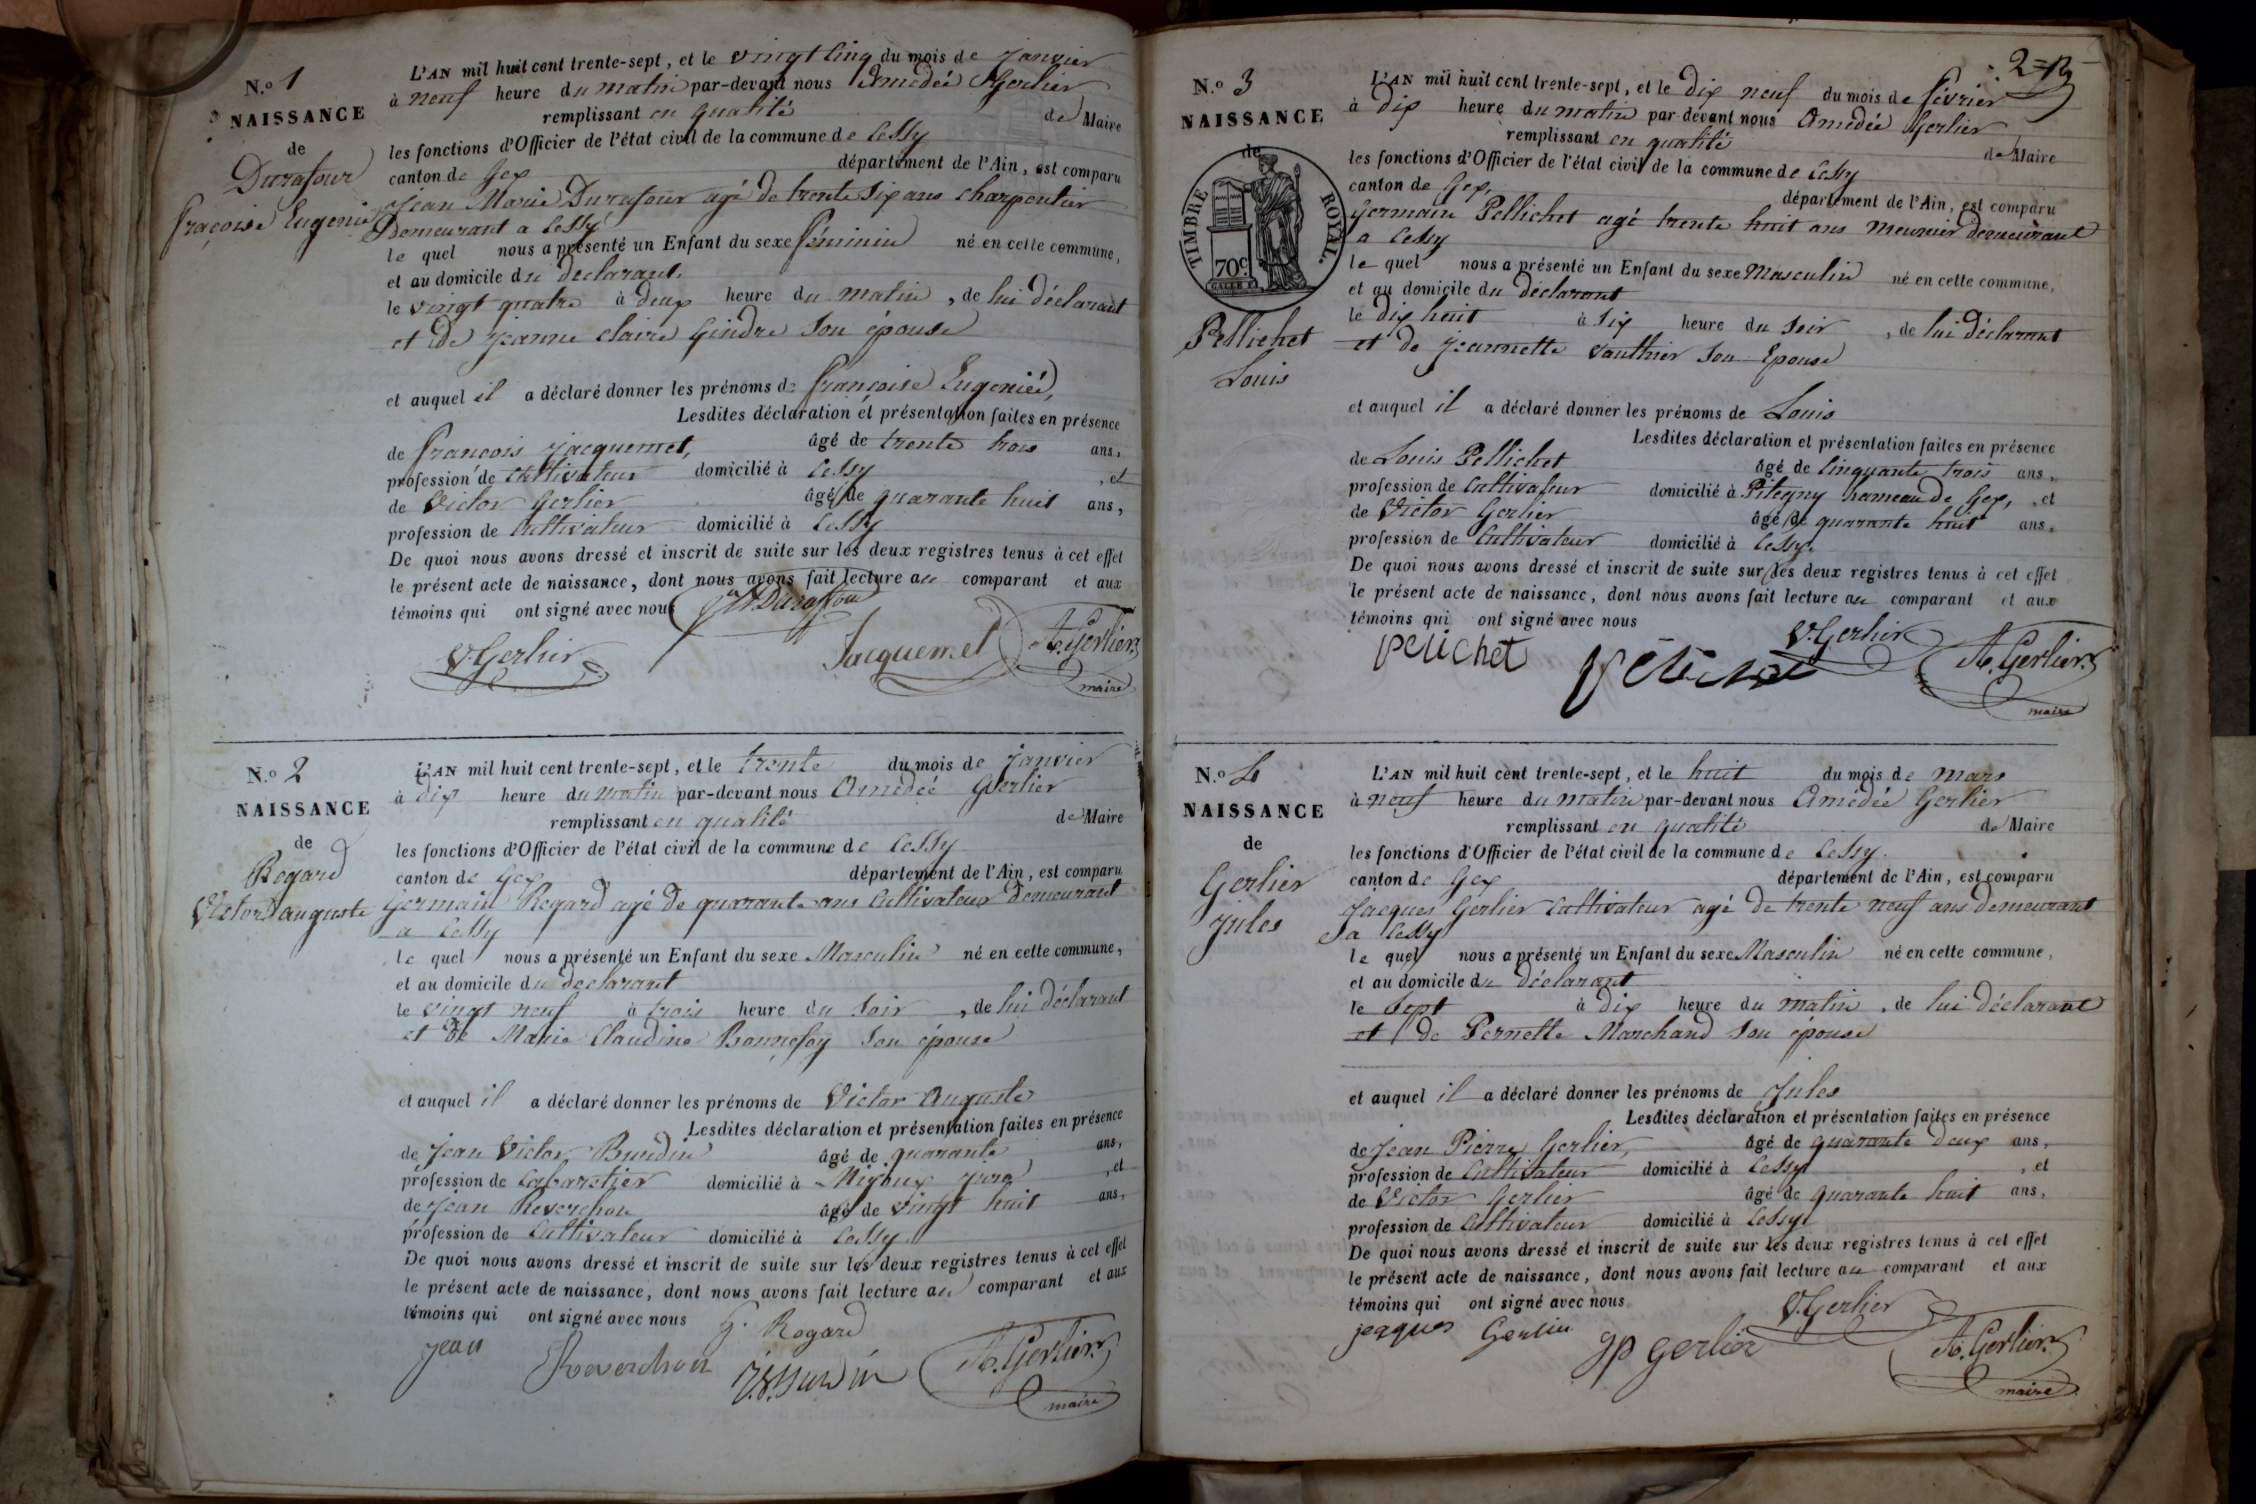 N.º 1
NAISSANCE
de
Durafour
françoise Eugenie
L'AN mil huit cent trente-sept, et le vingt cinq du mois de janvier
à neuf heure du matin par-devant nous Amedée Gerlier
remplissant en qualité de Maire
les fonctions d'Officier de l'état civil de la commune de Cessy
canton de Gex département de l'Ain, est comparu
Jean Marie Durafour agé de trente six ans charpentier
Demeurant a Cessy
le quel nous a présenté un Enfant du sexe féminin né en cette commune,
et au domicile du declarant.
le vingt quatre à deux heure du matin, de lui déclarant
et de jeanne claire Gindre son épouse
et auquel il a déclaré donner les prénoms de françoise Eugenié,
Lesdites déclaration et présentation faites en présence
de françois jacquemet, âgé de trente trois ans,
profession de cultivateur domicilié à Cessy, et
de Victor Gerlier âgé de quarante huit ans,
profession de cultivateur domicilié à Cessy
De quoi nous avons dressé et inscrit de suite sur les deux registres tenus à cet effet
le présent acte de naissance, dont nous avons fait lecture au comparant et aux
témoins qui ont signé avec nous Durafour
V. Gerlier Jacquemet A. Gerlier
maire
N.º 2
NAISSANCE
de
Regard
Victor auguste
L'AN mil huit cent trente-sept, et le trente du mois de janvier
à dix heure du matin par-devant nous Amédée Gerlier
remplissant en qualité de Maire
les fonctions d'Officier de l'état civil de la commune de Cessy
canton de Gex département de l'Ain, est comparu
Germain Regard agé de quarante ans Cultivateur demeurant
a Cessy
le quel nous a présenté un Enfant du sexe Masculin né en cette commune,
et au domicile du declarant
le vingt neuf à trois heure du soir, de lui déclarant
et de Marie Claudine Bonnefoy son épouse
et auquel il a déclaré donner les prénoms de Victor Auguste
Lesdites déclaration et présentation faites en présence
de jean Victor âgé de quarante ans,
profession de Cabaretier domicilié à Mijoux, et
de jean Reverchon âgé de vingt huit ans,
profession de Cultivateur domicilié à Cessy
De quoi nous avons dressé et inscrit de suite sur les deux registres tenus à cet effet
le présent acte de naissance, dont nous avons fait lecture au comparant et aux
témoins qui ont signé avec nous G. Regard
jean Reverchon A. Gerlier
maire
N.º 3
NAISSANCE
de
TIMBRE ROYAL.
70 c.
Pellichet
Louis
L'AN mil huit cent trente-sept, et le dix neuf du mois de février
à dix heure du matin par-devant nous Amédée Gerlier
remplissant en qualité de Maire
les fonctions d'Officier de l'état civil de la commune de Cessy
canton de Gex, département de l'Ain, est comparu
Germain Pellichet agé trente huit ans meunier demeurant
a Cessy
le quel nous a présenté un Enfant du sexe Masculin né en cette commune,
et au domicile du déclarant
le dix huit à six heure du soir, de lui déclarant
et de jeannette Vauthier son Epouse
et auquel il a déclaré donner les prénoms de Louis
Lesdites déclaration et présentation faites en présence
de Louis Pellichet âgé de Cinquante trois ans,
profession de Cultivateur domicilié à Pitegny hameau de Gex, et
de Victor Gerlier âgé de quarante huit ans,
profession de Cultivateur domicilié à Cessy.
De quoi nous avons dressé et inscrit de suite sur les deux registres tenus à cet effet
le présent acte de naissance, dont nous avons fait lecture au comparant et aux
témoins qui ont signé avec nous
pelichet V. Gerlier A. Gerlier
maire
N.º 4
NAISSANCE
de
Gerlier
jules
L'AN mil huit cent trente-sept, et le huit du mois de mars
à neuf heure du matin par-devant nous Amédée Gerlier
remplissant en qualité de Maire
les fonctions d'Officier de l'état civil de la commune de Cessy.
canton de Gex département de l'Ain, est comparu
Jacques Gerlier Cultivateur agé de trente neuf ans demeurant
a Cessy
le quel nous a présenté un Enfant du sexe Masculin né en cette commune,
et au domicile du déclarant
le sept à dix heure du matin, de lui déclarant
et de Pernette Marchand son épouse
et auquel il a déclaré donner les prénoms de Jules
Lesdites déclaration et présentation faites en présence
de Jean Pierre Gerlier, âgé de quarante deux ans,
profession de Cultivateur domicilié à Cessy, et
de Victor Gerlier âgé de quarante huit ans,
profession de Cultivateur domicilié à Cessy
De quoi nous avons dressé et inscrit de suite sur les deux registres tenus à cet effet
le présent acte de naissance, dont nous avons fait lecture au comparant et aux
témoins qui ont signé avec nous
jeaques Gerlier gp gerlier V. Gerlier A. Gerlier
maire